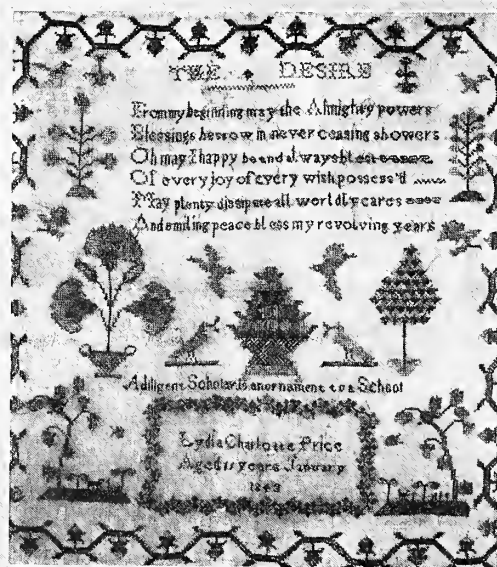 THE DESIRE
From my beginning may the Almighty powers
Blessings bestow in never ceasing showers
Oh may I happy be and always blest
Of every joy of every wish possess'd
May plenty dissipate all worldly cares
And smiling peace bless my revolving years
A diligent Scholar is an ornament to a School
Lydia Charlotte Price
Aged 11 years January